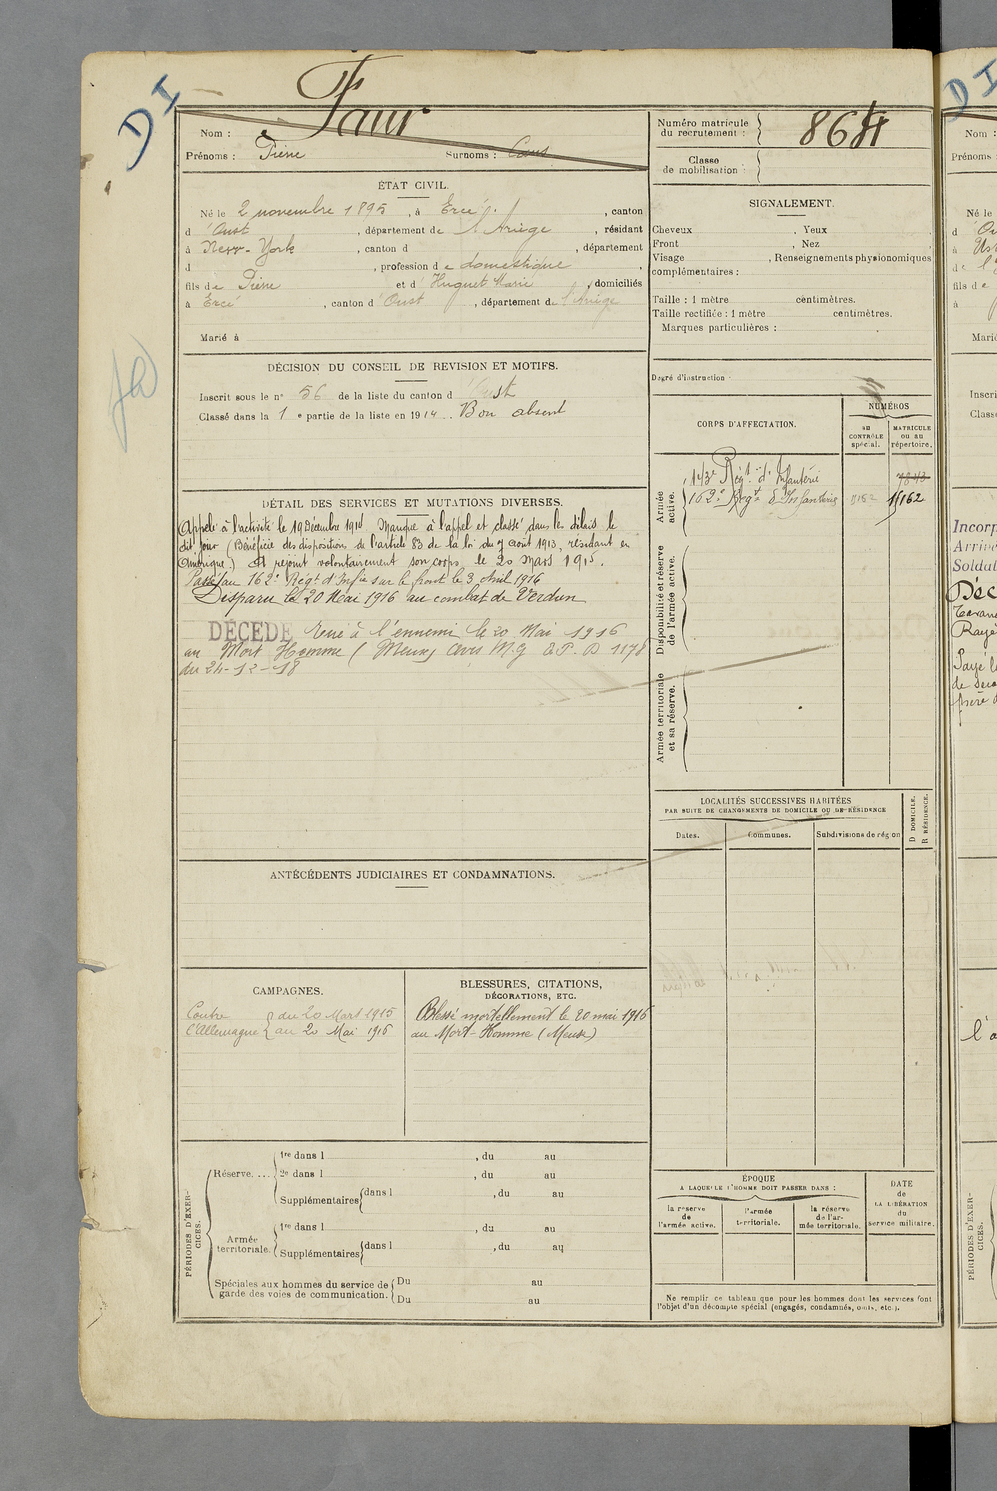 DI
Faur
Nom :
Prénoms : Pierre Surnoms :
Numéro matricule
du recrutement :
864
Classe
de mobilisation :
ÉTAT CIVIL.
Né le 2 novembre 1895, à Ercé, canton
d'Oust, département de l'Ariège, résidant
à New-York, canton d , département
d , profession de domestique,
fils de Pierre et d'Huguet Marie, domiciliés
à Ercé, canton d'Oust, département de l'Ariège
Marié à
SIGNALEMENT.
Cheveux , Yeux
Front , Nez
Visage , Renseignements physionomiques
complémentaires :
Taille : 1 mètre centimètres.
Taille rectifiée : 1 mètre centimètres.
Marques particulières :
Degré d'instruction
DÉCISION DU CONSEIL DE REVISION ET MOTIFS.
Inscrit sous le n° 56 de la liste du canton d'Oust
Classé dans la 1e partie de la liste en 1914. Bon absent
CORPS D'AFFECTATION.
NUMÉROS
AU
CONTRÔLE
spécial.
MATRICULE
ou au
répertoire.
Armée
active.
143e Régt. d'Infanterie 7843
162e Régt d'Infanterie 11162
Disponibilité et réserve
de l'armée active.
Armée territoriale
et sa réserve.
DÉTAIL DES SERVICES ET MUTATIONS DIVERSES.
Appelé à l'activité le 19 Décembre 1914. Manque à l'appel et classé dans les délais le
dit jour (Bénéficie des dispositions de l'article 83 de la loi du 7 août 1913, résidant en
Amérique.) Et rejoint volontairement son corps le 20 mars 1915.
Passé au 162e Régt. d'Infie sur le front le 3 avril 1916
Disparu le 20 Mai 1916 au combat de Verdun
DÉCÉDÉ Tué à l'ennemi le 20 Mai 1916
au Mort Homme (Meuse) Avis M.G E.P. D 1178
du 24-12-18
LOCALITÉS SUCCESSIVES HABITÉES
PAR SUITE DE CHANGEMENTS DE DOMICILE OU DE RÉSIDENCE
Dates. Communes. Subdivisions de région
D DOMICILE.
R RÉSIDENCE.
ANTÉCÉDENTS JUDICIAIRES ET CONDAMNATIONS.
CAMPAGNES.
Contre du 20 Mars 1915
l'Allemagne au 20 Mai 1916
BLESSURES, CITATIONS,
DÉCORATIONS, ETC.
Blessé mortellement le 20 mai 1916
au Mort-Homme (Meuse)
PÉRIODES D'EXER-
CICES.
Réserve. ...
1re dans l , du au
2e dans l , du au
Supplémentaires dans l , du au
Armée
territoriale.
1re dans l , du au
Supplémentaires dans l , du au
Spéciales aux hommes du service de
garde des voies de communication.
Du au
Du au
ÉPOQUE
A LAQUELLE L'HOMME DOIT PASSER DANS :
la réserve
de
l'armée active.
l'armée
territoriale.
la réserve
de l'ar-
mée territoriale.
DATE
de
LA LIBÉRATION
du
service militaire.
Ne remplir ce tableau que pour les hommes dont les services font
l'objet d'un décompte spécial (engagés, condamnés, omis, etc.).
DI
Nom :
Prénoms :
Né le
d
à
fils de
à
Marié
Inscri
Classé
Incorp
Arrivé
Soldat
PÉRIODES D'EXER-
CICES.